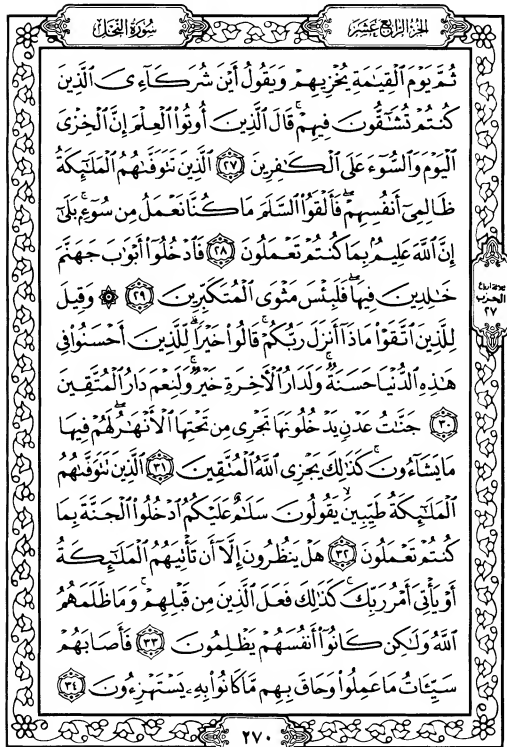 الجزء الرابع عشر
سورة النحل
ثُمَّ يَوْمَ ٱلْقِيَٰمَةِ يُخْزِيهِمْ وَيَقُولُ أَيْنَ شُرَكَآءِىَ ٱلَّذِينَ
كُنتُمْ تُشَٰٓقُّونَ فِيهِمْ ۚ قَالَ ٱلَّذِينَ أُوتُوا۟ ٱلْعِلْمَ إِنَّ ٱلْخِزْىَ
ٱلْيَوْمَ وَٱلسُّوٓءَ عَلَى ٱلْكَٰفِرِينَ ٢٧ ٱلَّذِينَ تَتَوَفَّىٰهُمُ ٱلْمَلَٰٓئِكَةُ
ظَالِمِىٓ أَنفُسِهِمْ ۖ فَأَلْقَوُا۟ ٱلسَّلَمَ مَا كُنَّا نَعْمَلُ مِن سُوٓءٍۭ ۚ بَلَىٰٓ
إِنَّ ٱللَّهَ عَلِيمٌۢ بِمَا كُنتُمْ تَعْمَلُونَ ٢٨ فَٱدْخُلُوٓا۟ أَبْوَٰبَ جَهَنَّمَ
خَٰلِدِينَ فِيهَا ۖ فَلَبِئْسَ مَثْوَى ٱلْمُتَكَبِّرِينَ ٢٩ ۞ وَقِيلَ
لِلَّذِينَ ٱتَّقَوْا۟ مَاذَآ أَنزَلَ رَبُّكُمْ ۚ قَالُوا۟ خَيْرًا ۗ لِّلَّذِينَ أَحْسَنُوا۟ فِى
هَٰذِهِ ٱلدُّنْيَا حَسَنَةٌ ۚ وَلَدَارُ ٱلْءَاخِرَةِ خَيْرٌ ۚ وَلَنِعْمَ دَارُ ٱلْمُتَّقِينَ
٣٠ جَنَّٰتُ عَدْنٍ يَدْخُلُونَهَا تَجْرِى مِن تَحْتِهَا ٱلْأَنْهَٰرُ ۖ لَهُمْ فِيهَا
مَا يَشَآءُونَ ۚ كَذَٰلِكَ يَجْزِى ٱللَّهُ ٱلْمُتَّقِينَ ٣١ ٱلَّذِينَ تَتَوَفَّىٰهُمُ
ٱلْمَلَٰٓئِكَةُ طَيِّبِينَ ۙ يَقُولُونَ سَلَٰمٌ عَلَيْكُمُ ٱدْخُلُوا۟ ٱلْجَنَّةَ بِمَا
كُنتُمْ تَعْمَلُونَ ٣٢ هَلْ يَنظُرُونَ إِلَّآ أَن تَأْتِيَهُمُ ٱلْمَلَٰٓئِكَةُ
أَوْ يَأْتِىَ أَمْرُ رَبِّكَ ۚ كَذَٰلِكَ فَعَلَ ٱلَّذِينَ مِن قَبْلِهِمْ ۚ وَمَا ظَلَمَهُمُ
ٱللَّهُ وَلَٰكِن كَانُوٓا۟ أَنفُسَهُمْ يَظْلِمُونَ ٣٣ فَأَصَابَهُمْ
سَيِّـَٔاتُ مَا عَمِلُوا۟ وَحَاقَ بِهِم مَّا كَانُوا۟ بِهِۦ يَسْتَهْزِءُونَ ٣٤
الحزب
٢٧
٢٧٠